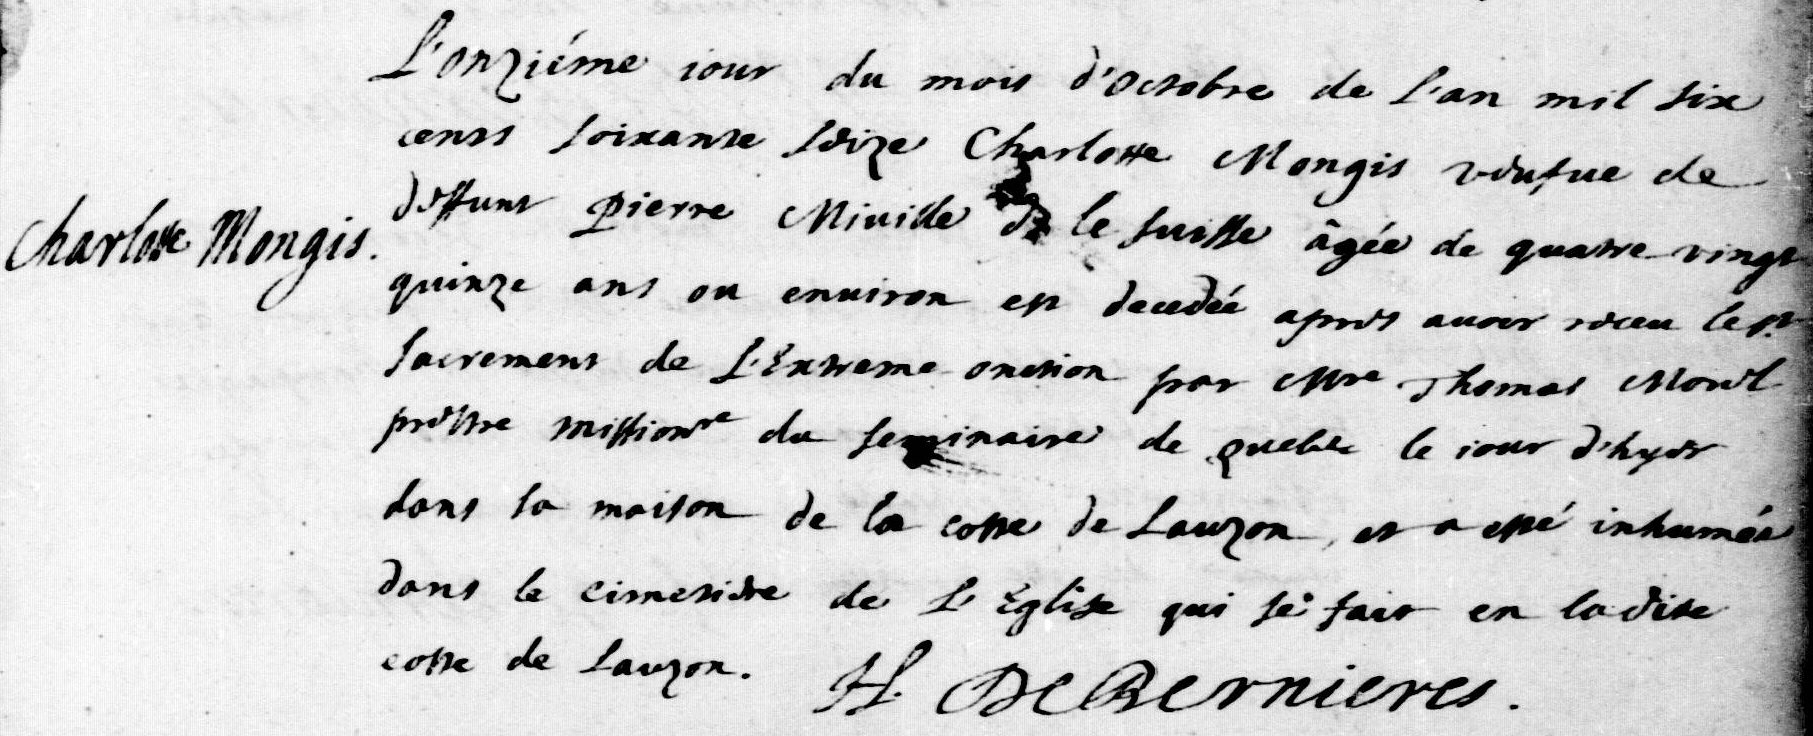 L'onziéme iour du mois d'Octobre de L'an mil six
cents soixante seize Charlotte Mongis veufue de
deffunt Pierre Miuille le suisse âgée de quatre vingt
Charlotte Mongis.
quinze ans ou enuiron est decedée apres auoir receu le st.
sacrement de L'Extreme onction par Mre Thomas Morel
prestre missionre du seminaire de quebec le iour d'hyer
dans sa maison de la coste de Lauzon, et a esté inhumée
dans le cimetiere de L'Eglise qui se fait en ladite
coste de Lauzon. H. DeBernieres.